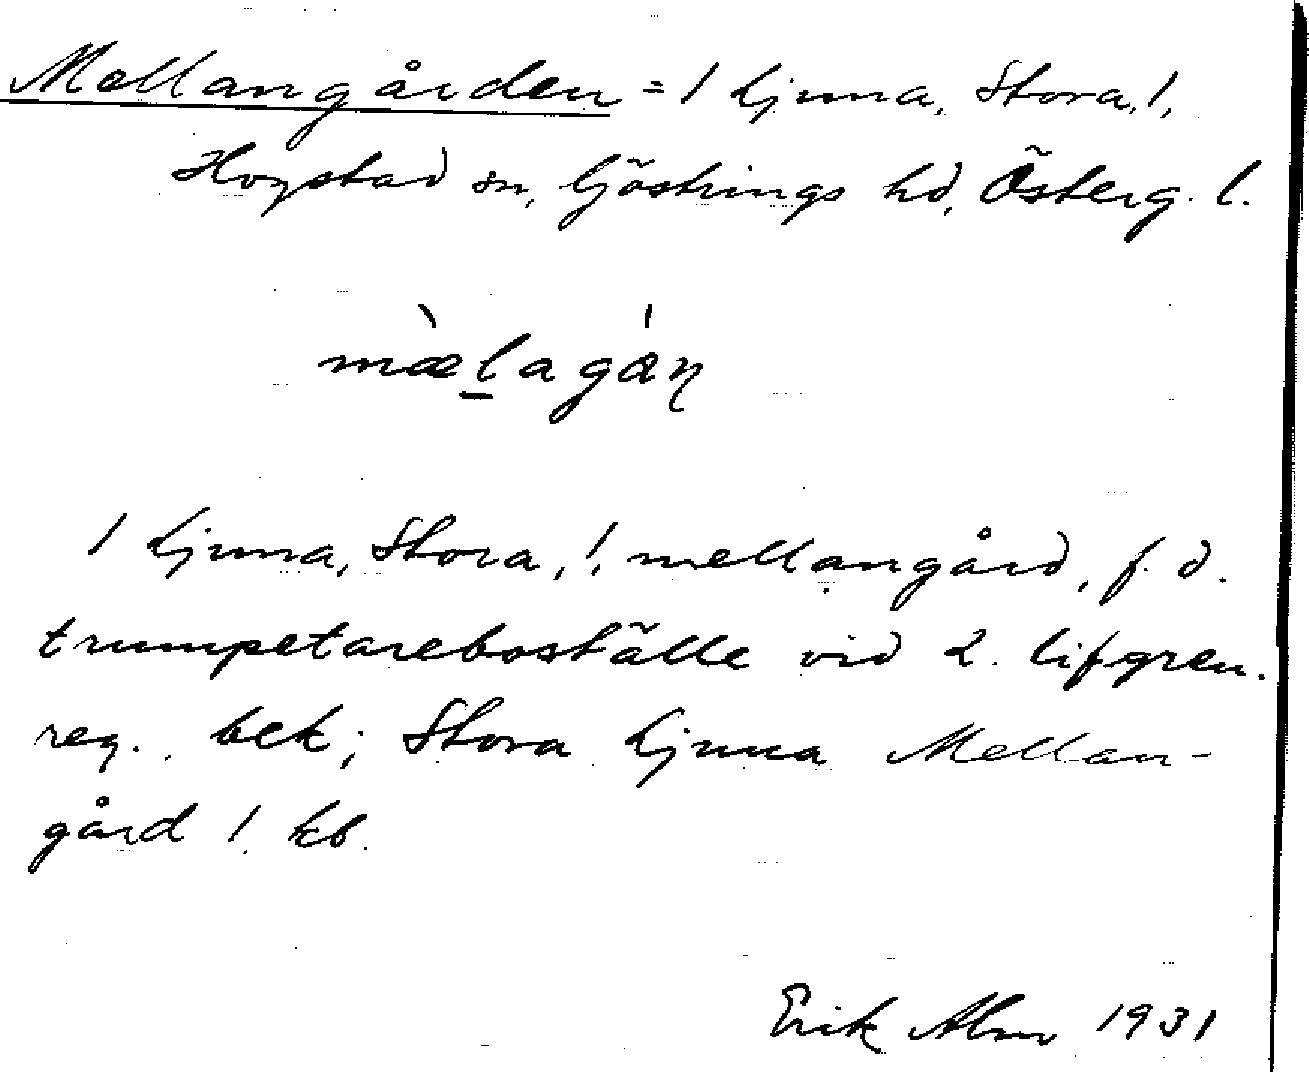 Mellangården = 1 Ljuna, Stora, 1,
Hogstad sn, Göstrings hd, Österg. l.
mæ̀lagá̊ṇ
1 Ljuna, Stora, 1, mellangård, f. d.
trumpetareboställe vid 2. lifgren.
reg., bek; Stora Ljuna Mellan-
gård 1. kb.
Erik Alm 1931